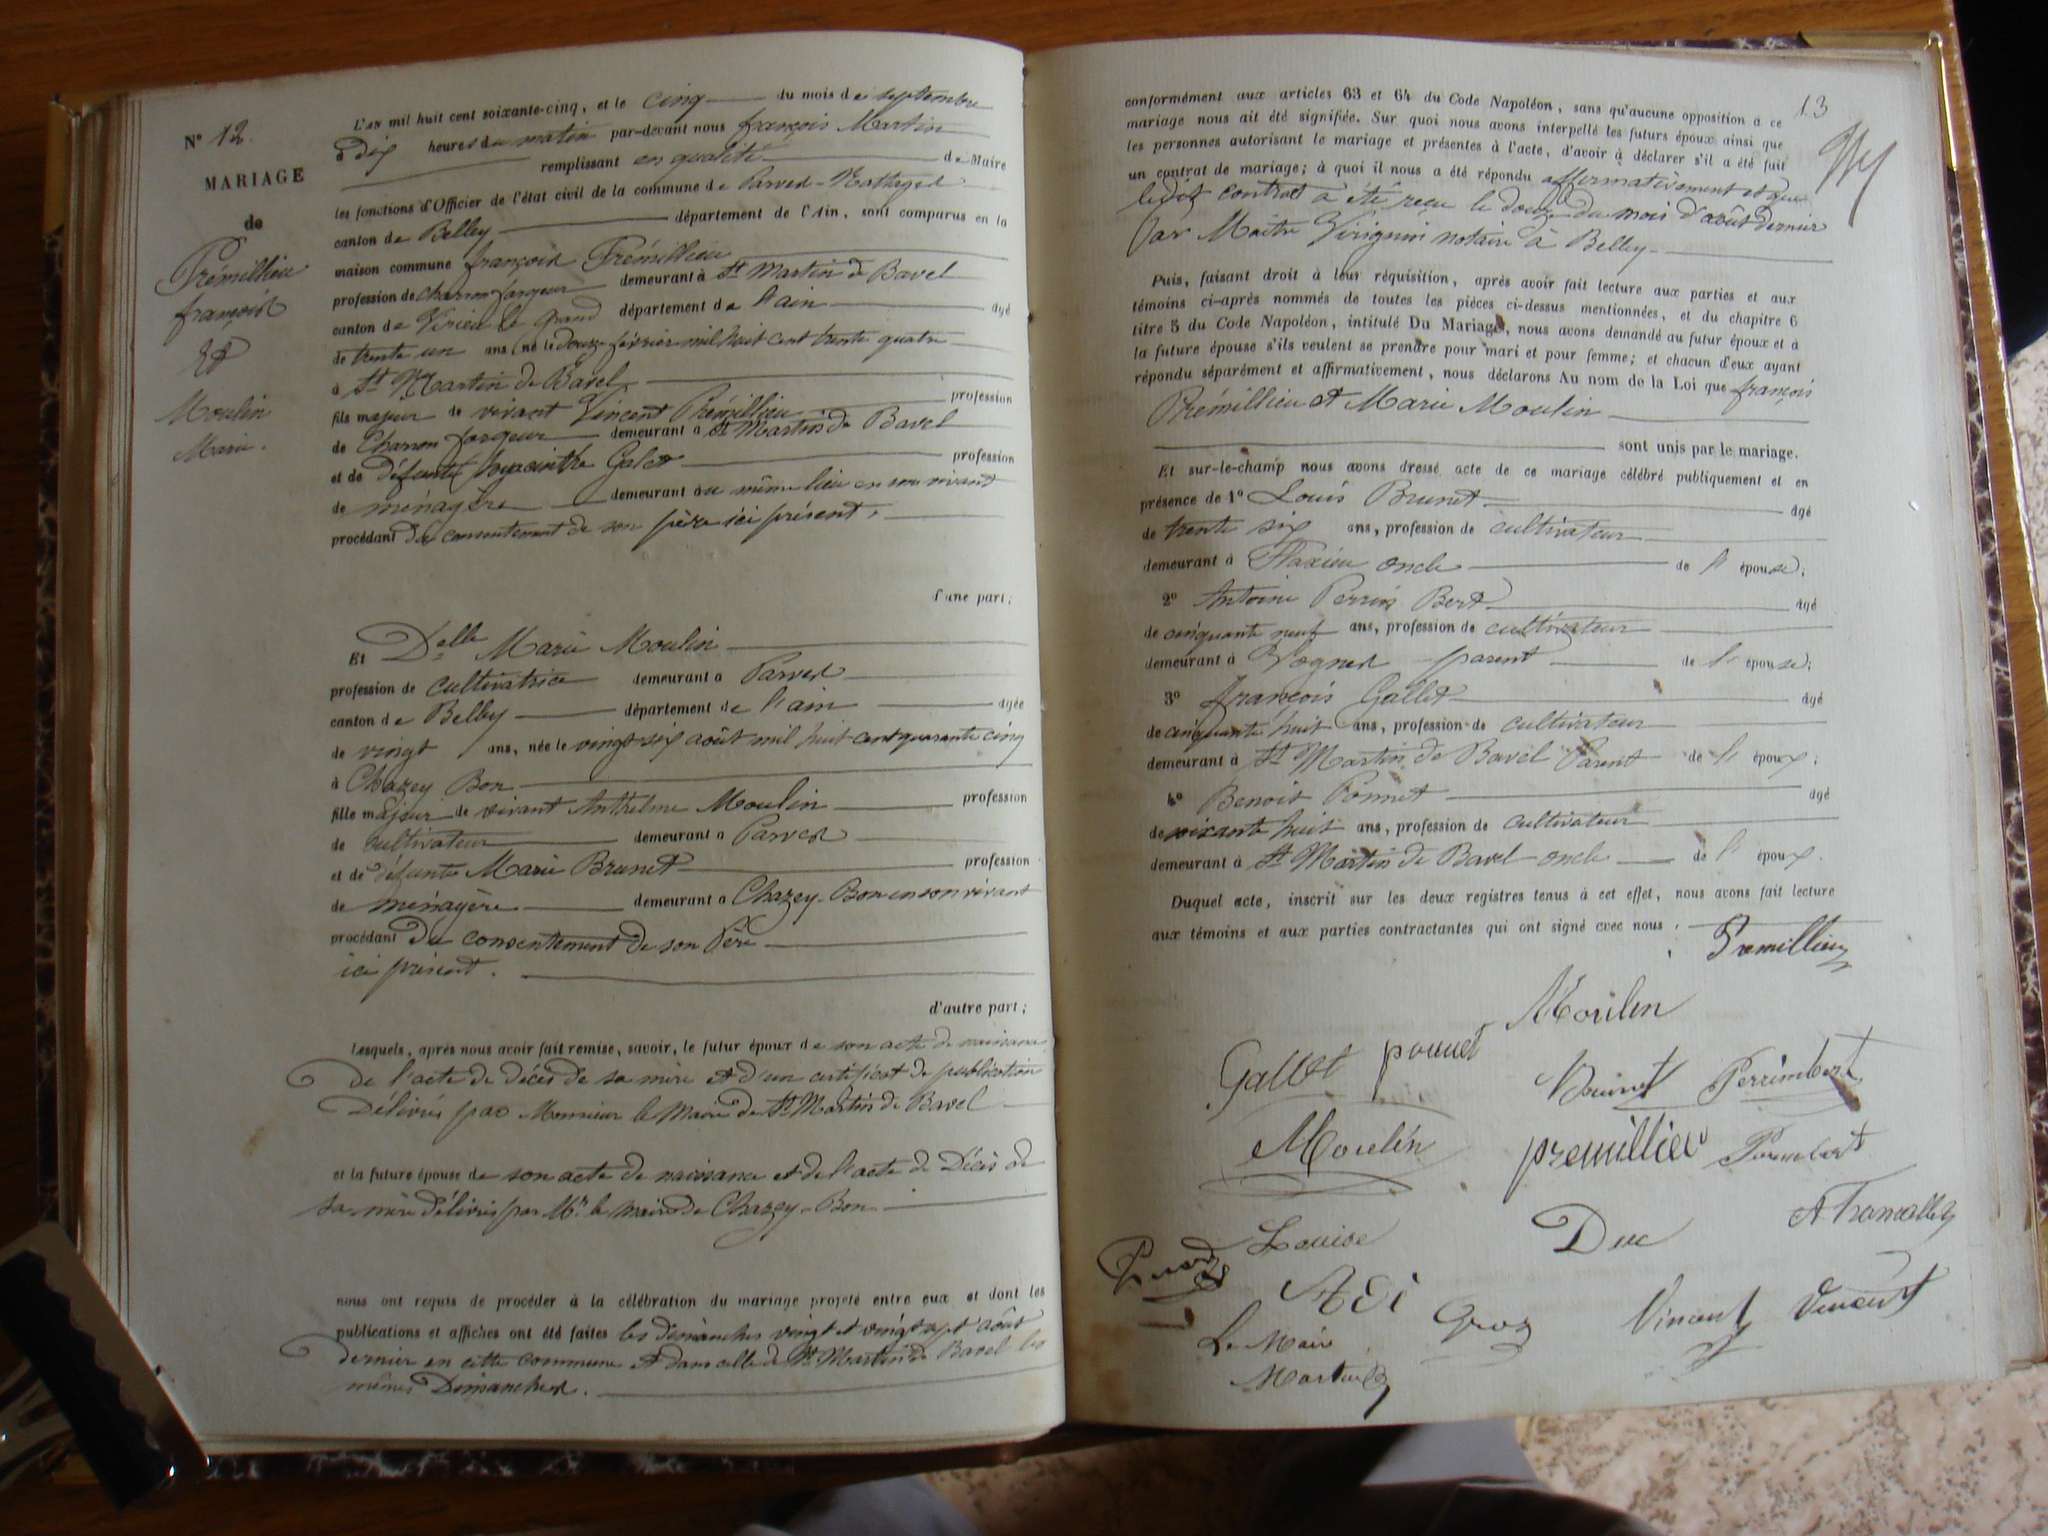 N° 12.
MARIAGE
de
Prémillieu
françois
&
Moulin
Marie.
L'AN mil huit cent soixante-cinq, et le cinq du mois de septembre
à dix heures du matin par-devant nous françois Martin
remplissant en qualité de Maire
les fonctions d'Officier de l'état civil de la commune de Parves-Nattages
canton de Belley département de l'Ain, sont comparus en la
maison commune françois Prémillieu
profession de charron forgeur demeurant à St Martin de Bavel
canton de Virieu le grand département de l'ain âgé
de trente un ans, né le douze février mil huit cent trente quatre
à St Martin de Bavel
fils majeur de vivant Vincent Prémillieu profession
de Charron forgeur demeurant à St Martin de Bavel
et de défunte hyacinthe Galet profession
de ménagère demeurant au même lieu en son vivant
procédant du consentement de son père ici présent,
d'une part;
Et Delle Marie Moulin
profession de cultivatrice demeurant à Parves
canton de Belley département de l'ain agée
de vingt ans, née le vingt six août mil huit cent quarante cinq
à Chazey Bon
fille majeur de vivant Anthelme Moulin profession
de cultivateur demeurant à Parves
et de défunte Marie Brunet profession
de ménagère demeurant à Chazey-Bon en son vivant
procédant du consentement de son Père
ici présent.
d'autre part;
Lesquels, après nous avoir fait remise, savoir, le futur époux de son acte de naissance
de l'acte de décès de sa mère et d'un certificat de publication
délivrés par Monsieur le Maire de St Martin de Bavel
et la future épouse de son acte de naissance et de l'acte de Décès de
sa mère délivrés par Mr le maire de Chazey-Bon
nous ont requis de procéder à la célébration du mariage projeté entre eux et dont les
publications et affiches ont été faites les dimanches vingt et vingt sept août
dernier en cette commune et dans celle de St Martin de Bavel les
mêmes Dimanches.
13
conformément aux articles 63 et 64 du Code Napoléon, sans qu'aucune opposition à ce
mariage nous ait été signifiée. Sur quoi nous avons interpellé les futurs époux ainsi que
les personnes autorisant le mariage et présentes à l'acte, d'avoir à déclarer s'il a été fait
un contrat de mariage; à quoi il nous a été répondu affirmativement et que
ledit contrat a été reçu le douze du mois d'août dernier
Par Maître notaire à Belley
Puis, faisant droit à leur réquisition, après avoir fait lecture aux parties et aux
témoins ci-après nommés de toutes les pièces ci-dessus mentionnées, et du chapitre 6
titre 5 du Code Napoléon, intitulé Du Mariage, nous avons demandé au futur époux et à
la future épouse s'ils veulent se prendre pour mari et pour femme; et chacun d'eux ayant
répondu séparément et affirmativement, nous déclarons Au nom de la Loi que françois
Prémillieu et Marie Moulin
sont unis par le mariage.
Et sur-le-champ nous avons dressé acte de ce mariage célébré publiquement et en
présence de 1° Louis Brunet âgé
de trente six ans, profession de cultivateur
demeurant à Flaxieu oncle de l'épouse;
2° Antoine Perrin Bert âgé
de cinquante neuf ans, profession de cultivateur
demeurant à Vognes parent de l'épouse;
3° François Gallet âgé
de cinquante huit ans, profession de cultivateur
demeurant à St Martin de Bavel Parent de l'époux;
4° Benoit Ponnet âgé
de soixante huit ans, profession de cultivateur
demeurant à St Martin de Bavel oncle de l'époux.
Duquel acte, inscrit sur les deux registres tenus à cet effet, nous avons fait lecture
aux témoins et aux parties contractantes qui ont signé avec nous.
Premillieu
Moulin
Gallet ponnet
Brunet Perrimbert
Moulin premillieu Perrimbert
Louise Duc
Groz Vincent Vincent
Le Maire
Martin